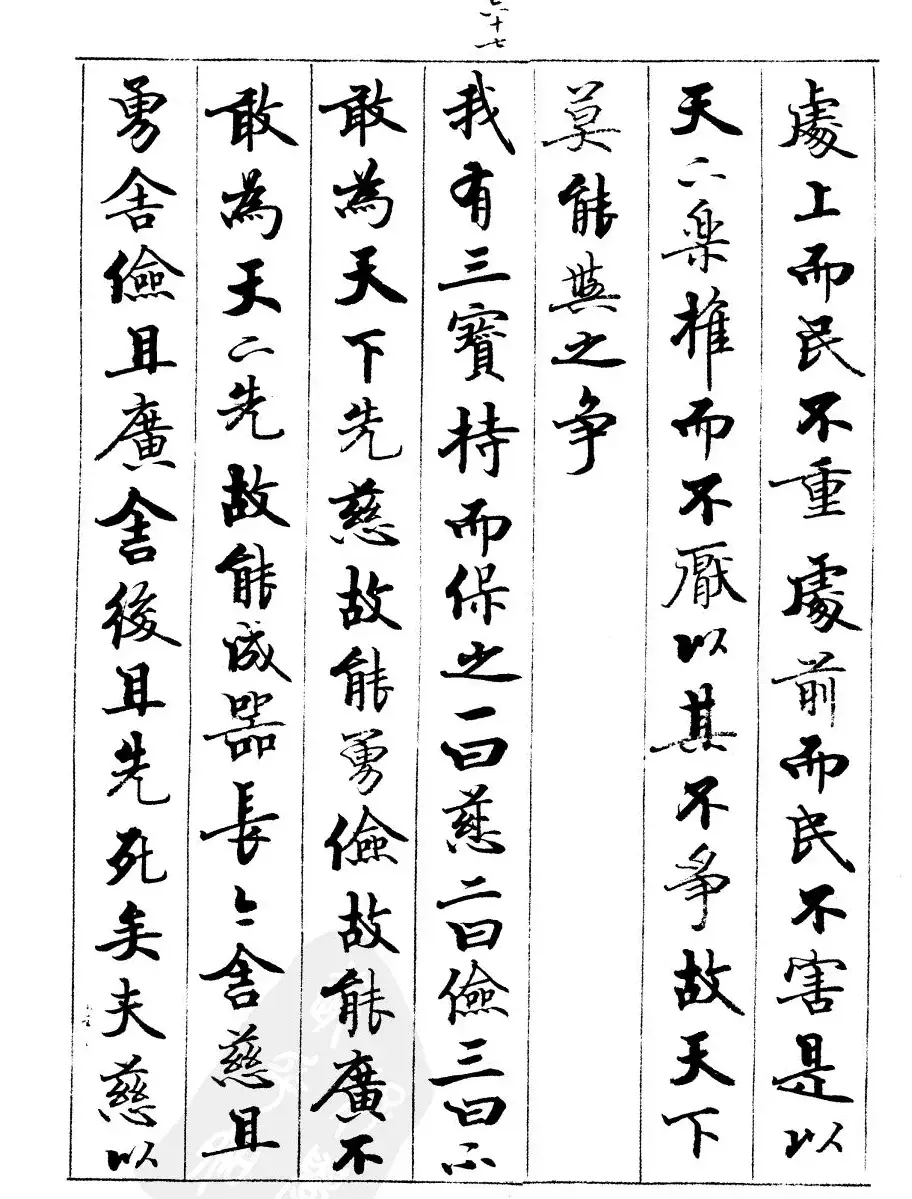 六十七
處上而民不重處前而民不害是以
天下樂推而不厭以其不爭故天下
莫能與之争
我有三寶持而保之一曰慈二曰儉三曰不
敢為天下先慈故能勇儉故能廣不
敢為天下先故能成器長今舍慈且
勇舍儉且廣舍後且先死矣夫慈以